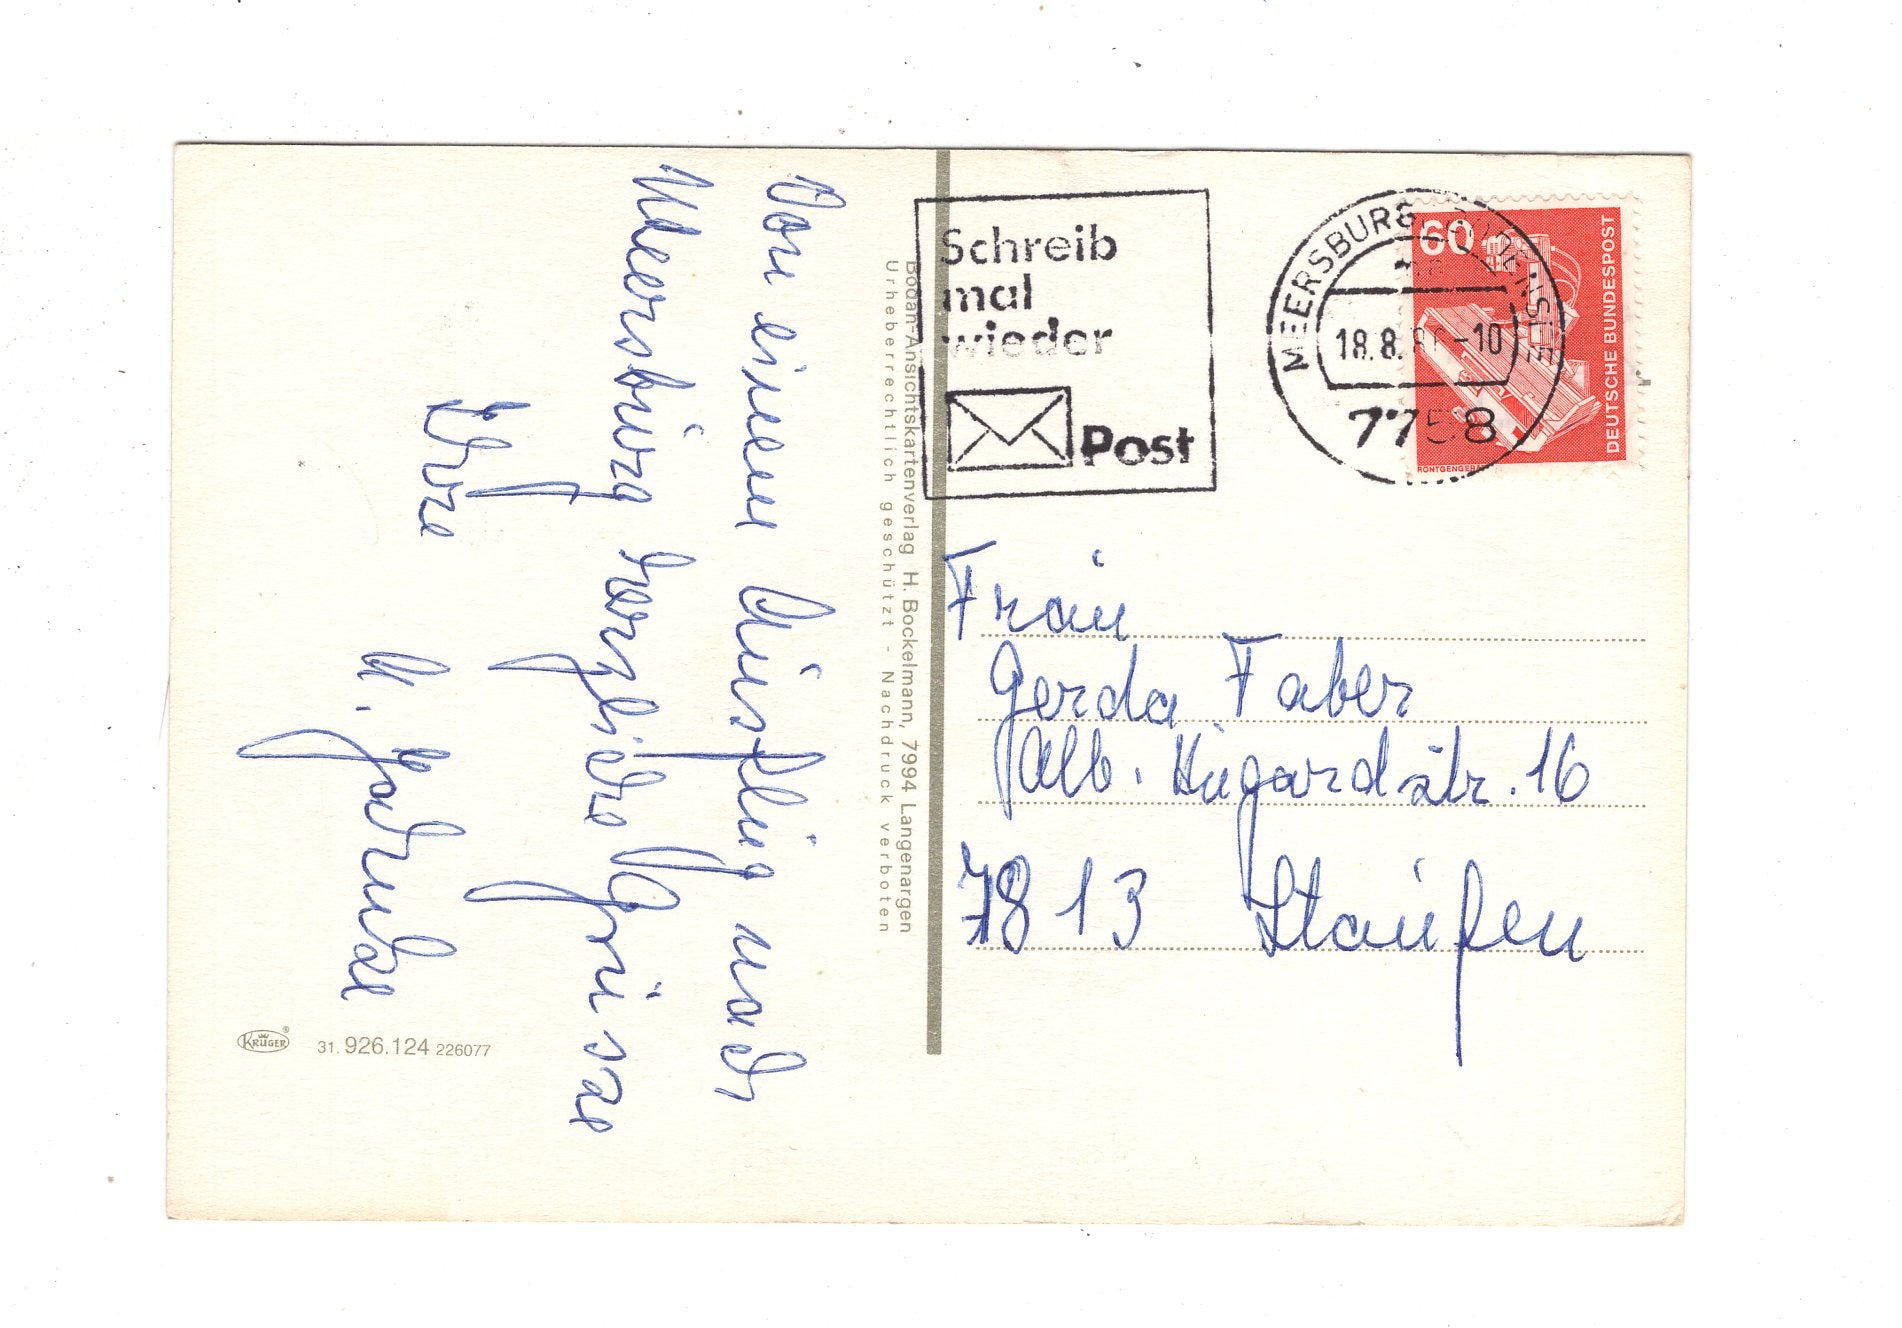 Von einem Ausflug nach
Meersburg herzliche Grüsse
Ihre
Bodan-Ansichtskartenverlag H. Bockelmann, 7994 Langenargen
Urheberrechtlich geschützt - Nachdruck verboten
KRÜGER®
31. 926.124 226077
Schreib
mal
wieder
Post
MEERSBURG, BODENSEE
18.8. -10
7758
60
DEUTSCHE BUNDESPOST
Frau
Gerda Faber
Alb. Hugardstr. 16
7813 Staufen